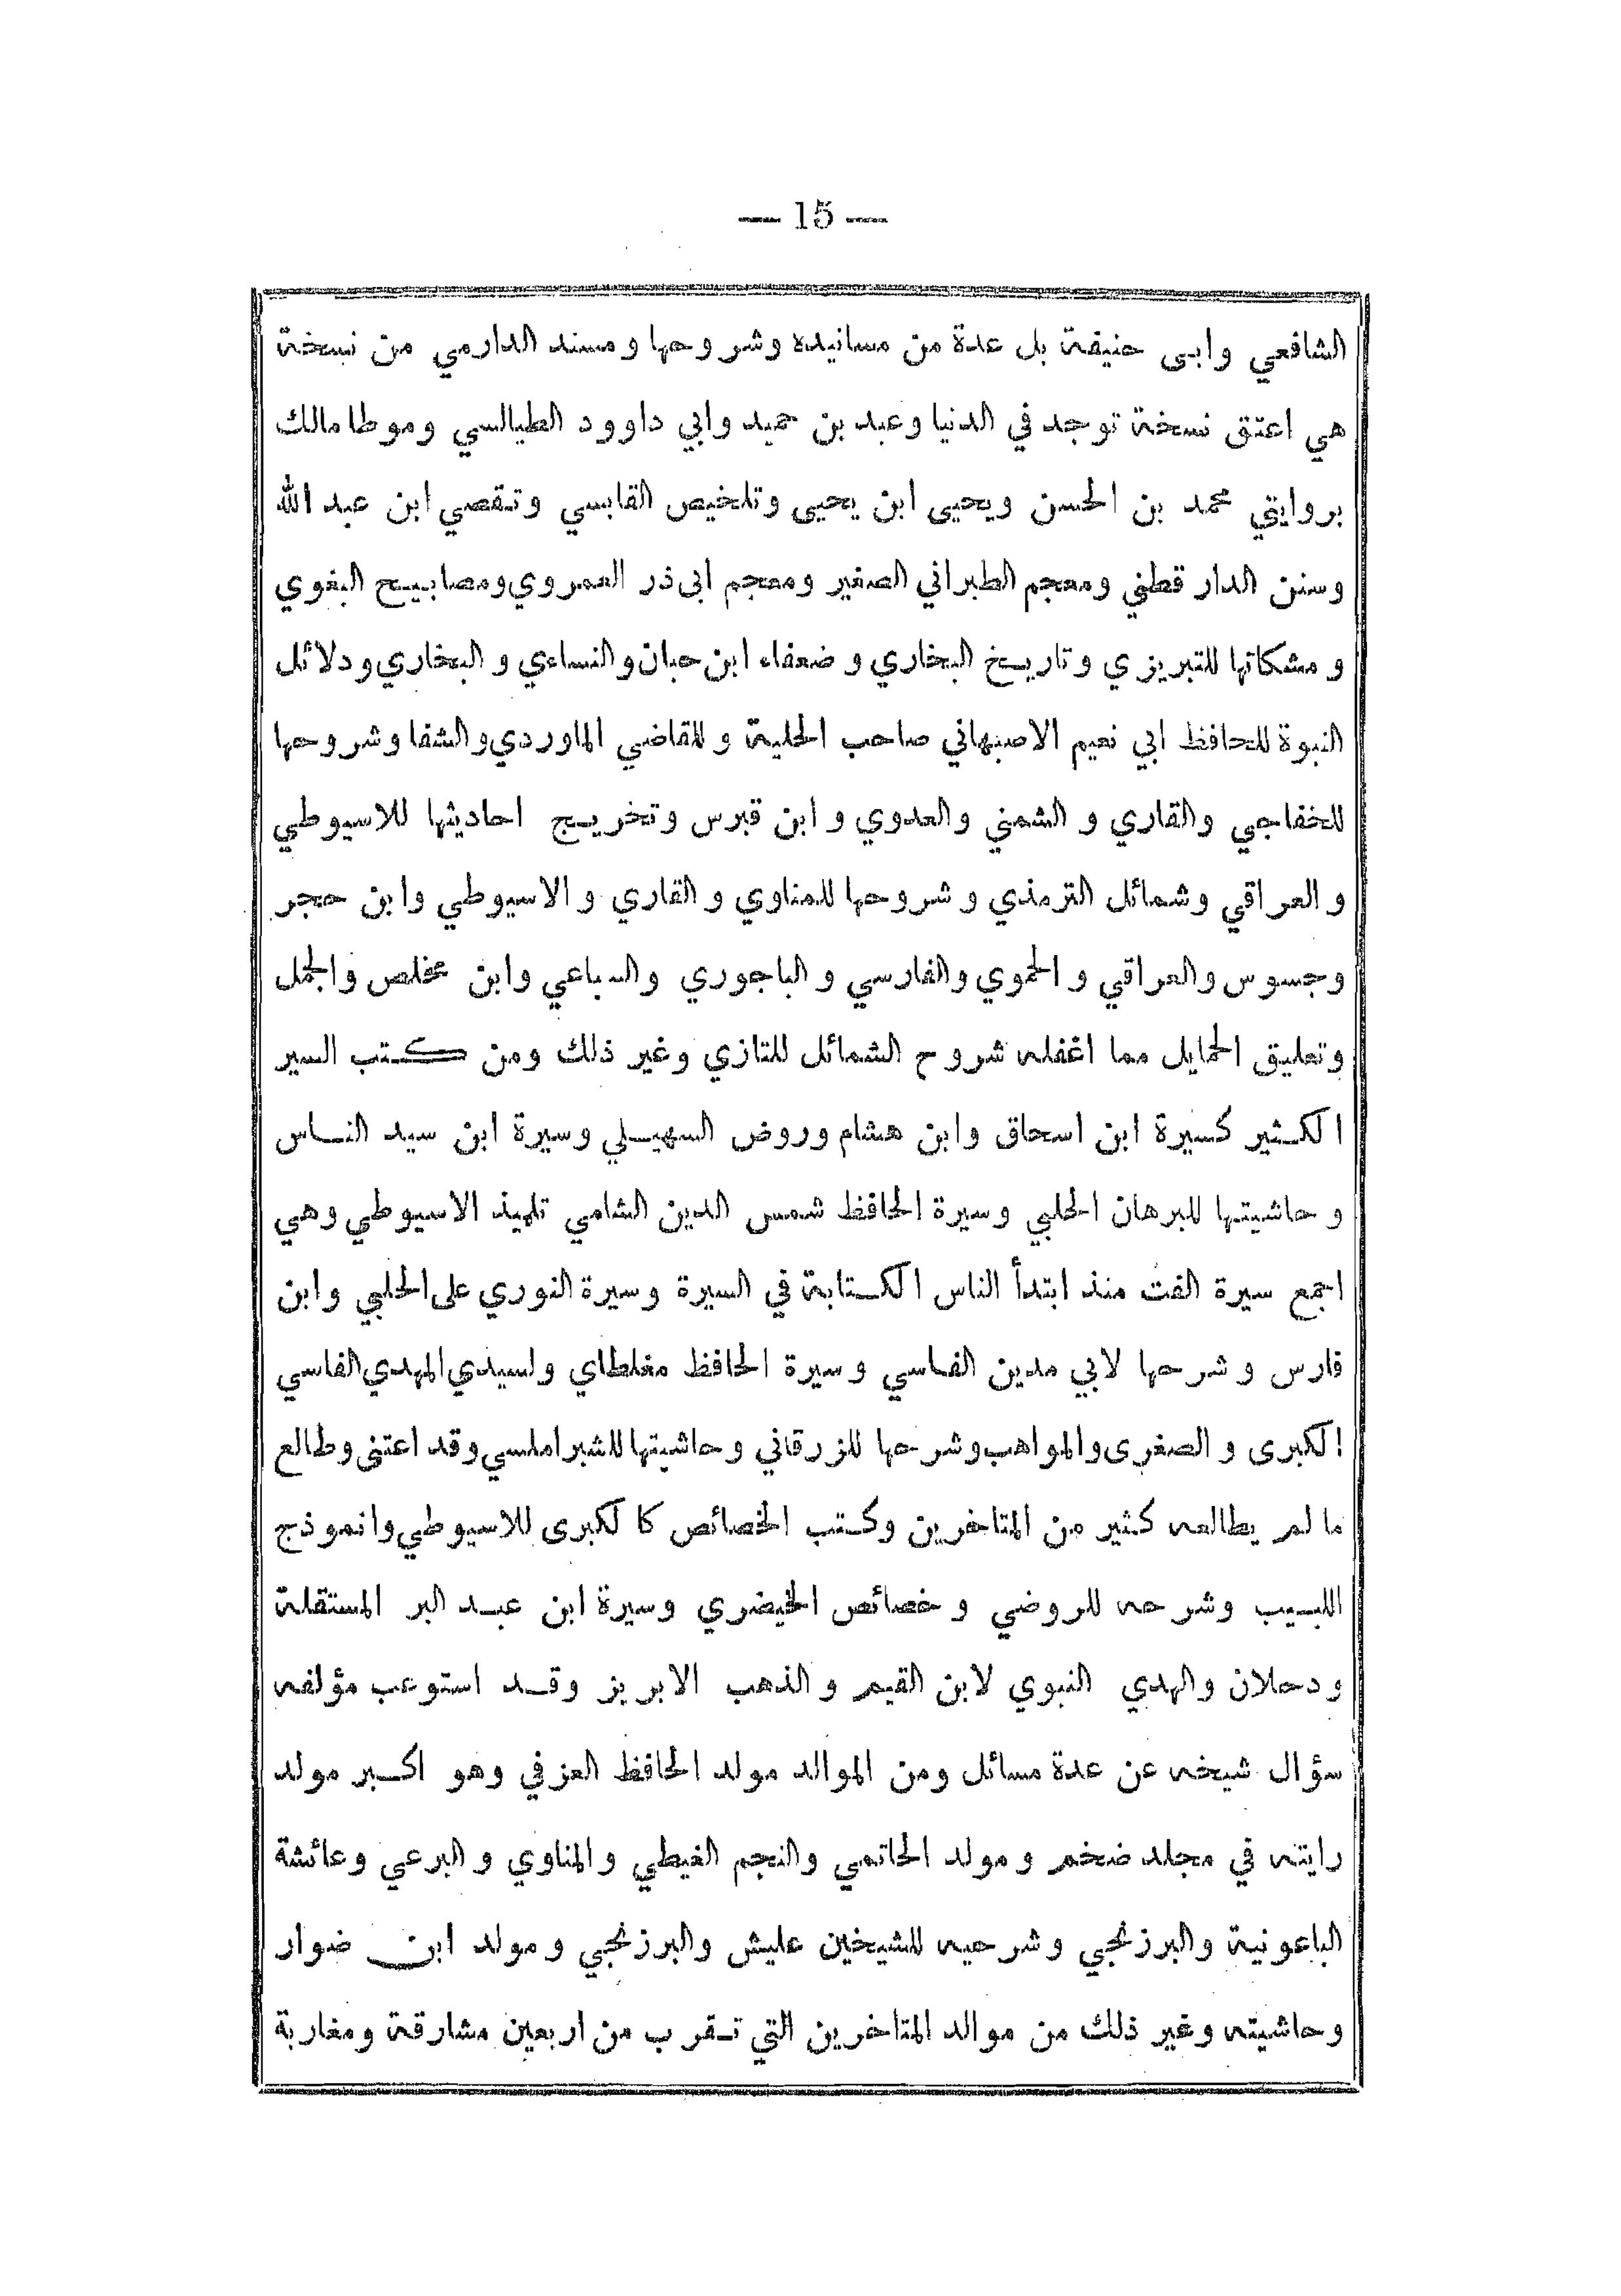 — 15 —
الشافعي وابى حنيفة بل عدة من مسانيده وشروحها ومسند الدارمي من نسخة
هي اعتق نسخة توجد في الدنيا وعبد بن حميد وابي داوود الطيالسي وموطا مالك
بروايتي محمد بن الحسن ويحيى ابن يحيى وتلخيص القابسي وتقصي ابن عبد الله
وسنن الدار قطني ومعجم الطبراني الصغير ومعجم ابى ذر العمروي ومصابيح البغوي
و مشكاتها للتبريزي وتاريخ البخاري و ضعفاء ابن حبان والنساءي و البخاري ودلائل
النبوة للحافظ ابي نعيم الاصبهاني صاحب الحلية و للقاضي الماوردي والشفا وشروحها
للخفاجي والقاري و الشمني والعدوي و ابن قبرس وتخريج احاديثها للاسيوطي
و العراقي وشمائل الترمذي و شروحها للمناوي و القاري و الاسيوطي وابن حجر
وجسوس والعراقي و الحموي والفارسي و الباجوري والسباعي وابن مخلص والجمل
وتعليق الحمايل مما اغفله شروح الشمائل للتازي وغير ذلك ومن كتب السير
الكثير كسيرة ابن اسحاق وابن هشام وروض السهيلي وسيرة ابن سيد الناس
و حاشيتها للبرهان الحلبي وسيرة الحافظ شمس الدين الشامي تلميذ الاسيوطي وهي
اجمع سيرة الفت منذ ابتدأ الناس الكتابة في السيرة وسيرة النوري على الحلبي وابن
فارس وشرحها لابي مدين الفاسي وسيرة الحافظ مغلطاي ولسيدي المهدي الفاسي
الكبرى و الصغرى والمواهب وشرحها للزرقاني وحاشيتها للشبراملسي وقد اعتنى وطالع
ما لم يطالعه كثير من المتاخرين وكتب الخصائص كالكبرى للاسيوطي وانموذج
اللبيب وشرحه للروضي و خصائص الخيضري وسيرة ابن عبد البر المستقلة
ودحلان والهدي النبوي لابن القيم و الذهب الابريز وقد استوعب مؤلفه
سؤال شيخه عن عدة مسائل ومن الموالد مولد الحافظ العزفي وهو اكبر مولد
رايته في مجلد ضخم و مولد الحاتمي والنجم الغيطي و المناوي و البرعي وعائشة
الباعونية والبرزنجي وشرحيه للشيخين عليش والبرزنجي ومولد ابن ضوار
وحاشيته وغير ذلك من موالد المتاخرين التي تقرب من اربعين مشارقة ومغاربة